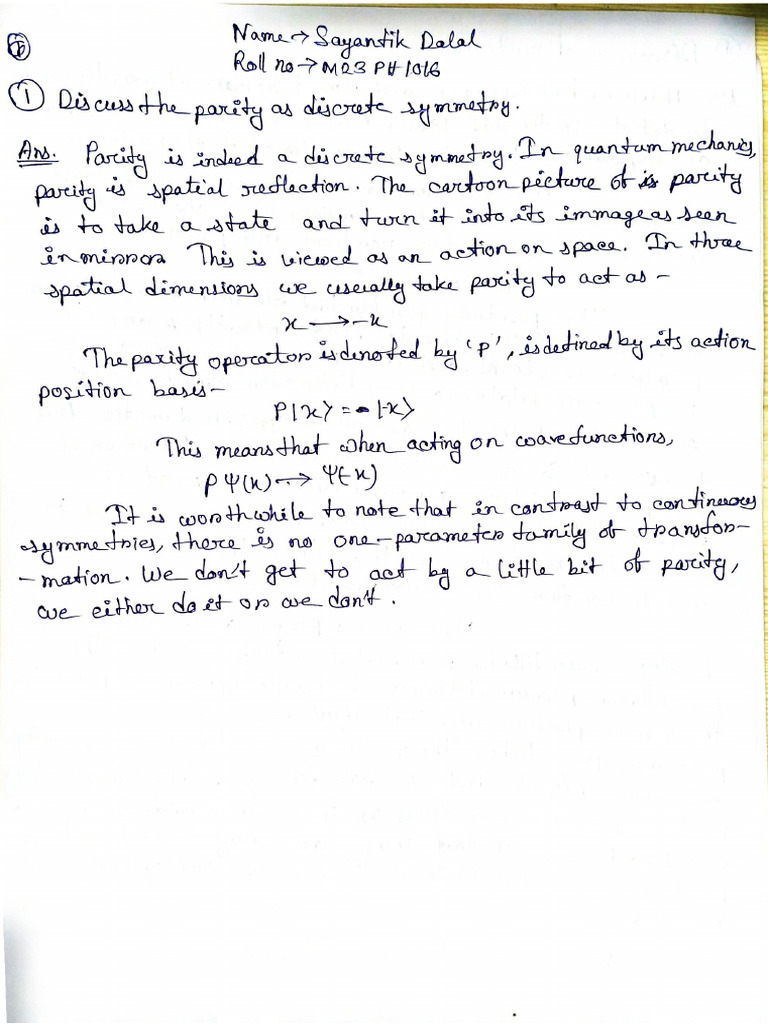 Name → Sayantik Dalal
Roll no → M23PH1016
① Discuss the parity as discrete symmetry.
Ans. Parity is indeed a discrete symmetry. In quantum mechanics,
parity is spatial reflection. The cartoon picture of parity
is to take a state and turn it into its immage as seen
in mirror. This is viewed as an action on space. In three
spatial dimensions we usually take parity to act as –
x → -x
The parity operator is denoted by 'P', is defined by its action
position basis –
P|x⟩ = |-x⟩
This means that when acting on wavefunctions,
P Ψ(x) → Ψ(-x)
It is worthwhile to note that in contrast to continuous
symmetries, there is no one-parameter family of transfor-
-mation. We don't get to act by a little bit of parity,
we either do it or we don't.